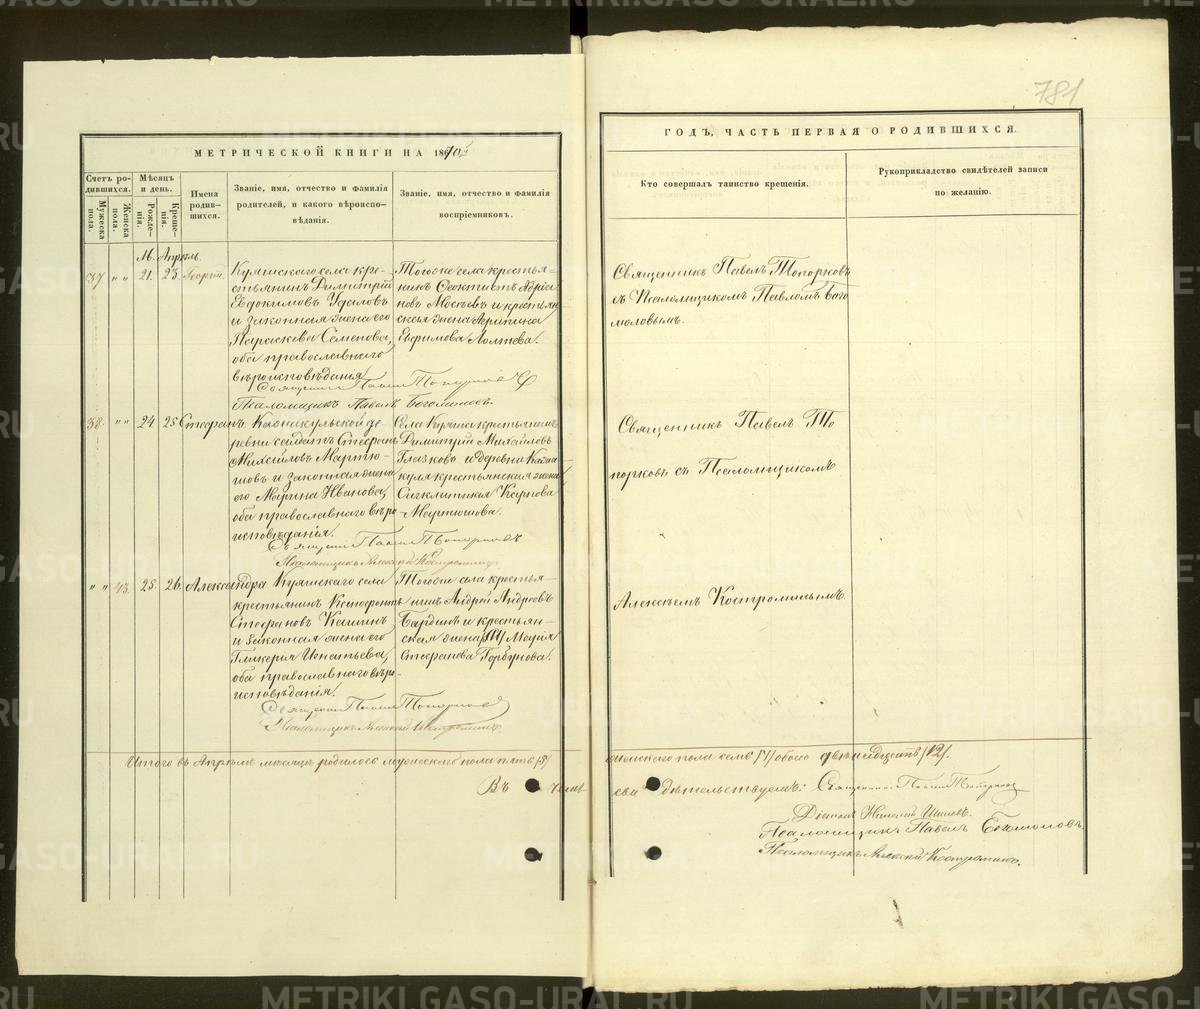 781
МЕТРИЧЕСКОЙ КНИГИ НА 18
ГОДЪ, ЧАСТЬ ПЕРВАЯ О РОДИВШИХСЯ.
Счетъ родившихся.
Мужеска пола.
Женска пола.
Мѣсяцъ и день.
Рожденія.
Крещенія.
Имена родившихся.
Званіе, имя, отчество и фамилія
родителей, и какого вѣроиспо-
вѣданія.
Званіе, имя, отчество и фамилія
воспріемниковъ.
Кто совершалъ таинство крещенія.
Рукоприкладство свидѣтелей записи
по желанію.
М. Апрѣль.
37. " " 21. 23. Георгій.
Кунашскаго села кре-
стьянинъ Димитрій
Евдокимовъ Удаловъ
и законная жена его
Параскева Семенова,
оба православнаго
вѣроисповѣданія.
Тогоже села крестья-
нинъ Ѳеоктистъ Адріа-
новъ и крестьян-
ская жена Агрипина
Евфимова
Священникъ Павелъ Топорковъ
съ Псаломщикомъ Павломъ Бого
моловымъ.
Священникъ Павелъ Топорковъ
Псаломщикъ Павелъ Богомоловъ.
38. " " 24 25 Стефанъ.
де-
ревни солдатъ Стефанъ
Михайловъ Мартю-
шовъ и законная жена
его Марина Иванова,
оба православнаго вѣро
исповѣданія.
Села крестьянинъ
Димитрій Михайловъ
Глазковъ и деревни
крестьянская жена
Сигклитикія Карпова
Мартюшова.
Священникъ Павелъ То
порковъ съ Псаломщикомъ
Алексѣемъ Костроминымъ.
Священникъ Павелъ Топорковъ
Псаломщикъ Алексѣй Костроминъ
" " 43. 25. 26. Александра
села
крестьянинъ Ксенофонтъ
Стефановъ
и законная жена его
Гликерія Игнатьева,
оба православнаго вѣро-
исповѣданія.
Тогоже села крестья-
нинъ Андрей Андреевъ
Бардинъ и крестьян-
ская жена Марія
Стефанова Горбунова.
Священникъ Павелъ Топорковъ
Псаломщикъ Алексѣй Костроминъ
Итого въ Апрѣлѣ мѣсяцѣ родилось мужескаго пола пять /5/
женскаго пола семь /7/ обоего двѣнадцать /12/.
Въ чемъ
сви дѣтельствуемъ: Священникъ Павелъ Топорковъ
Діаконъ Николай
Псаломщикъ Павелъ Богомоловъ.
Псаломщикъ Алексѣй Костроминъ.
METRIKI.GASO-URAL.RU